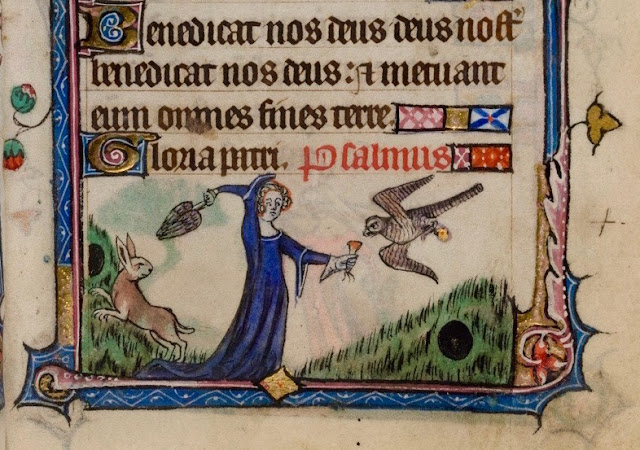 Benedicat nos deus deus nost
benedicat nos deus: et metuant
eum omnes fines terre.
Gloria patri. Psalmus